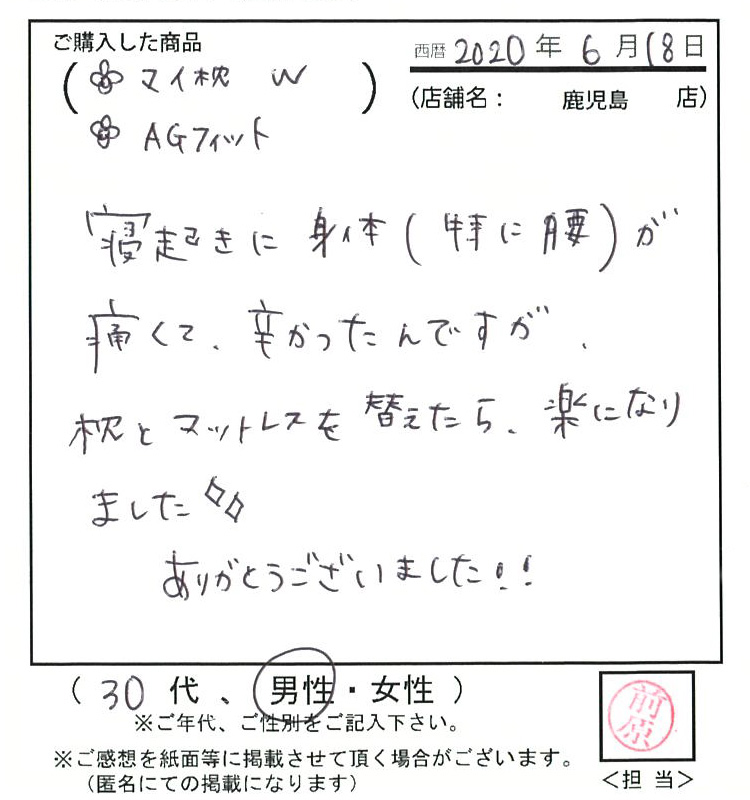 ご購入した商品
西暦 2020 年 6 月 18 日
( マイ枕 W )
(店舗名: 鹿児島 店)
AGフィット
寝起きに身体(特に腰)が
痛くて、辛かったんですが、
枕とマットレスを替えたら、楽になり
ました
ありがとうございました!!
( 30 代 、 男性・女性 )
※ご年代、ご性別をご記入下さい。
※ご感想を紙面等に掲載させて頂く場合がございます。
(匿名にての掲載になります)
前原
<担 当>